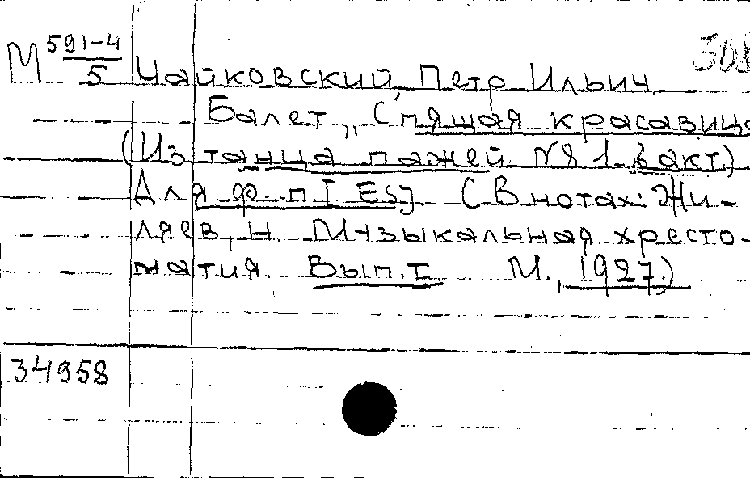 М 591-4/5 Чайковский Петр Ильич 308
Балет „Спящая красавица
(Из танца пажей №8 1. акт)
Для ф-п [Es] (В нотах: Жи-
ляев, Н. Музыкальная хресто-
матия Вып. I М., 1927.)
34958